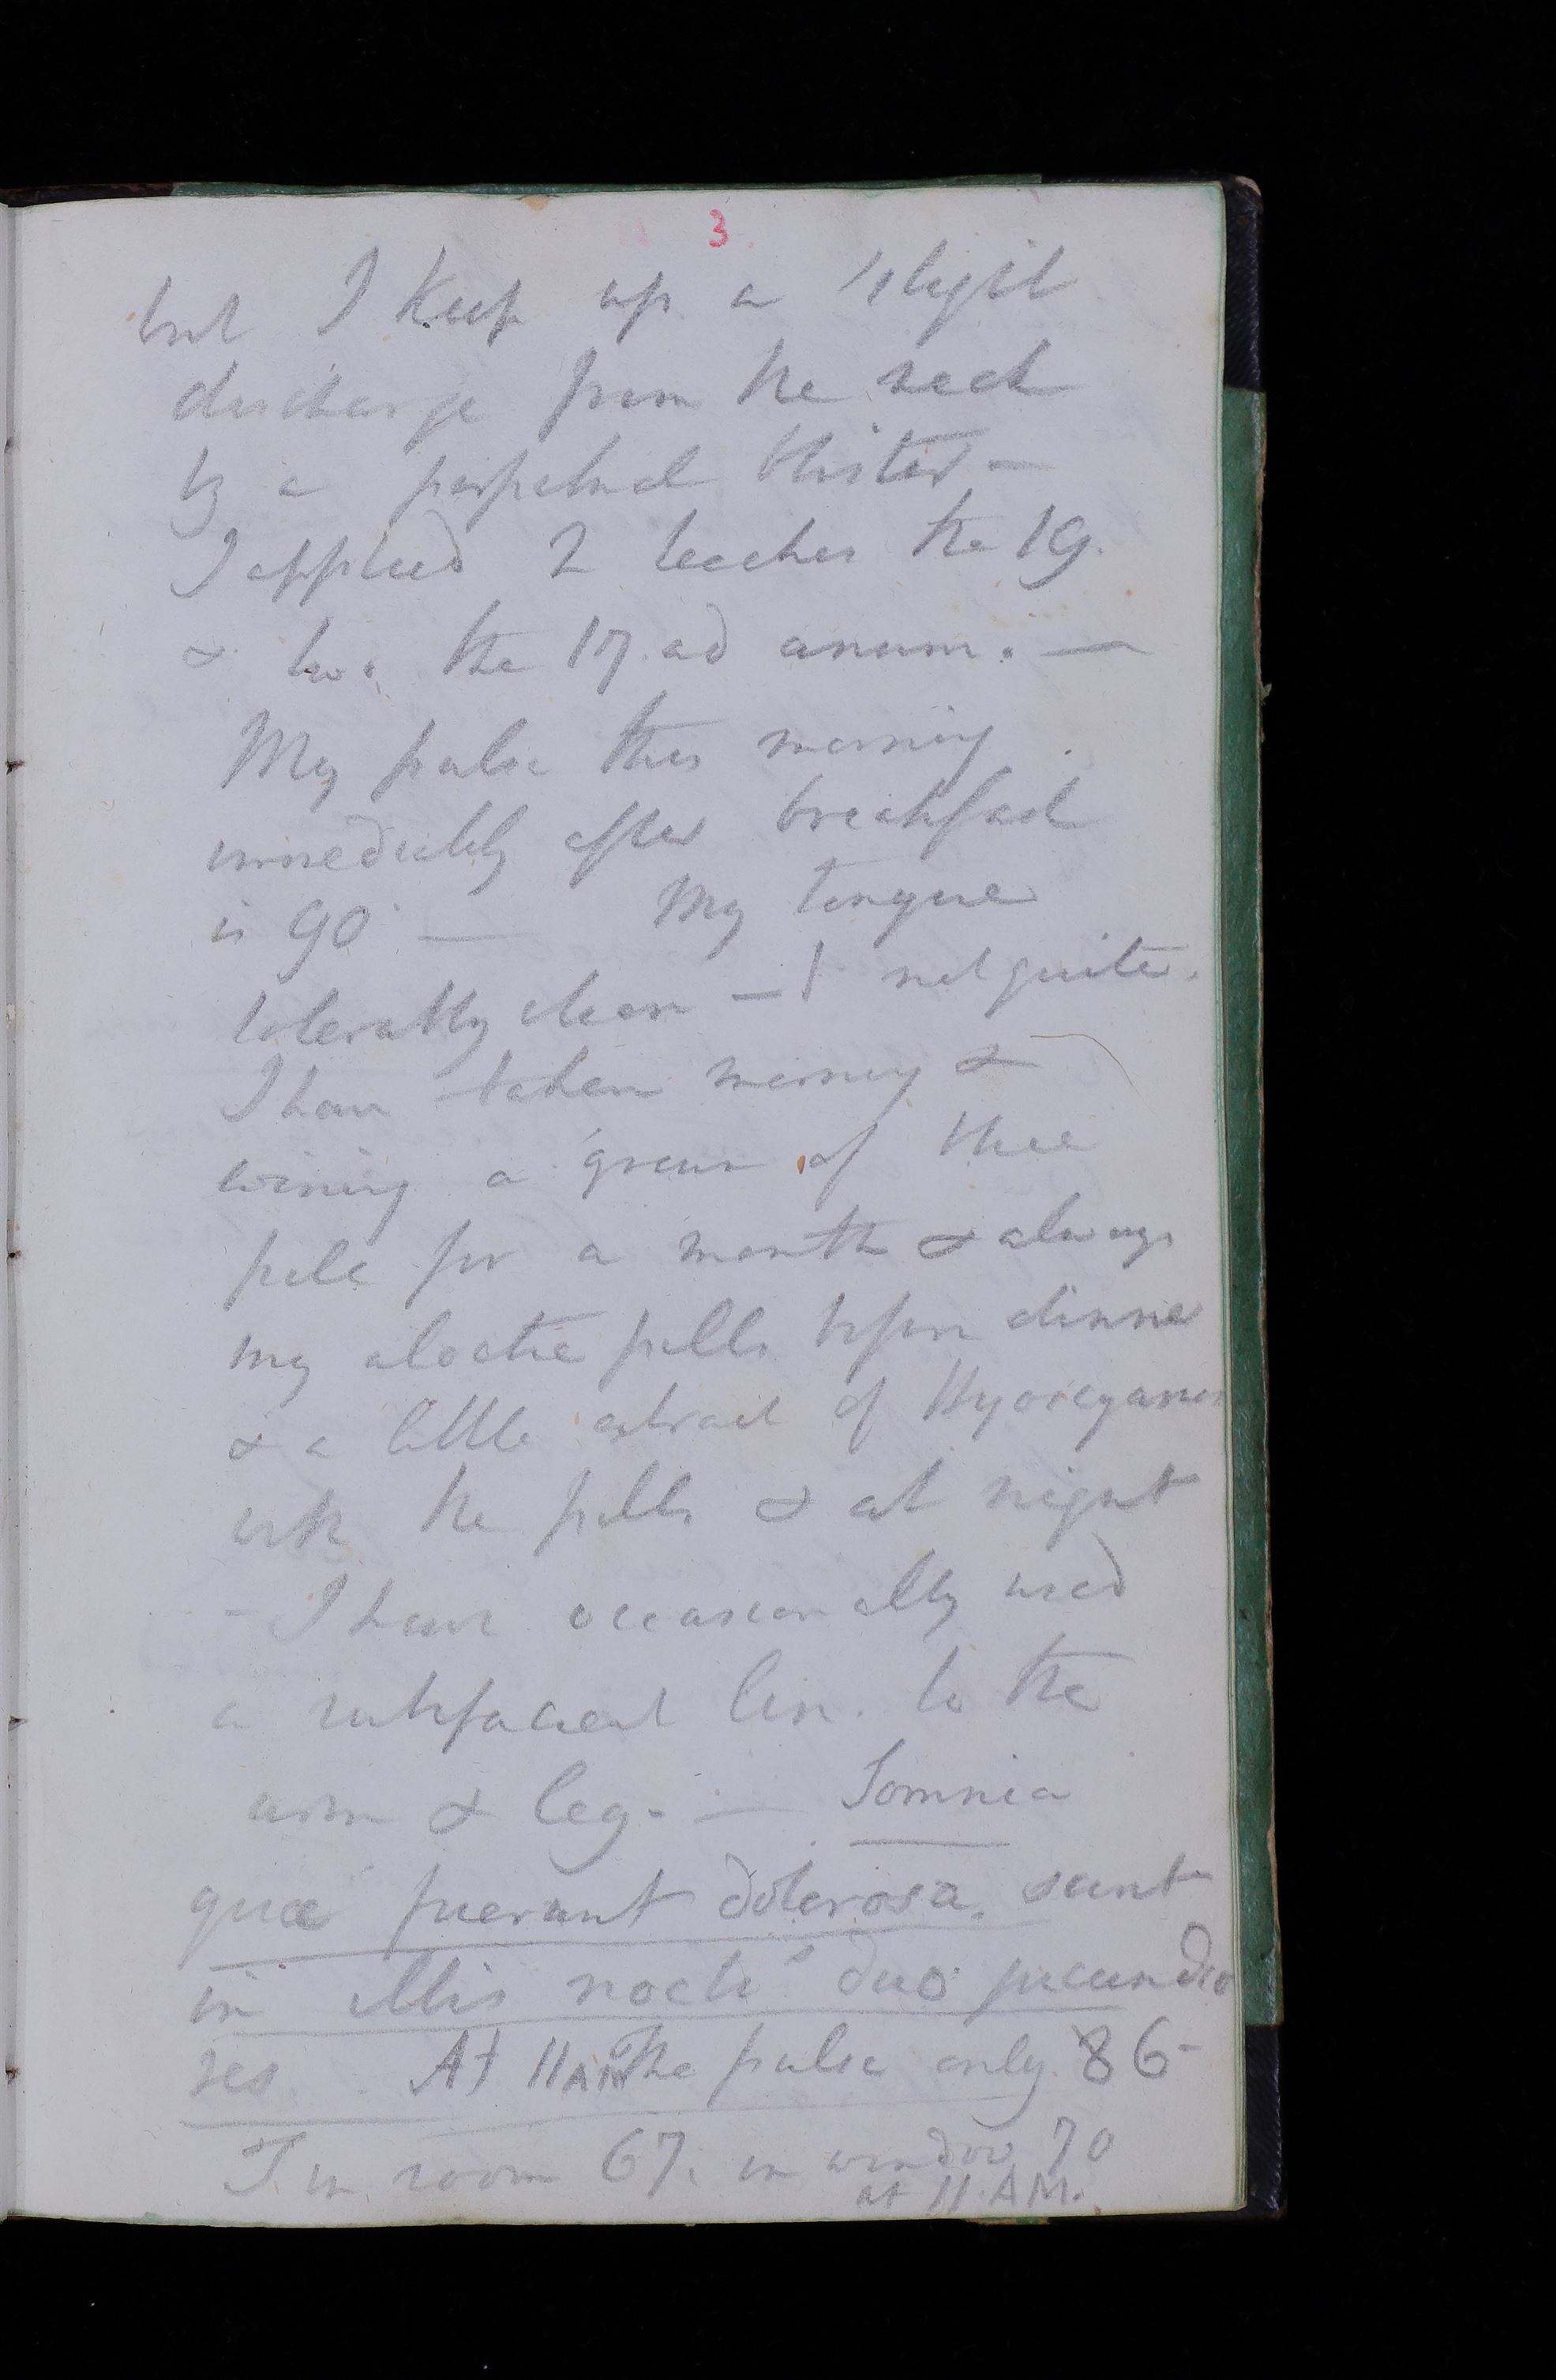 3
but I keep up a slight
discharge from the neck
by a perpetual blister –
I applied 2 leeches the 19.
& two the 17 ad anum. —
My pulse this morning
immediately after breakfast
is 90 — My tongue
tolerably clean – not quite.
I have taken morning &
evening a grain of blue
pill for a month & always
my aloetic pills before dinner
& a little extract of Hyoscyamos
with the pills & at night
- I have occasionally used
a rubefacient lin. to the
arm & leg. – Somnia
quæ fuerant dolorosa, sunt
in illis noctis duo jucundio
res. At 11 AM the pulse only 86 –
T in room 67. in window 70
at 11. AM.